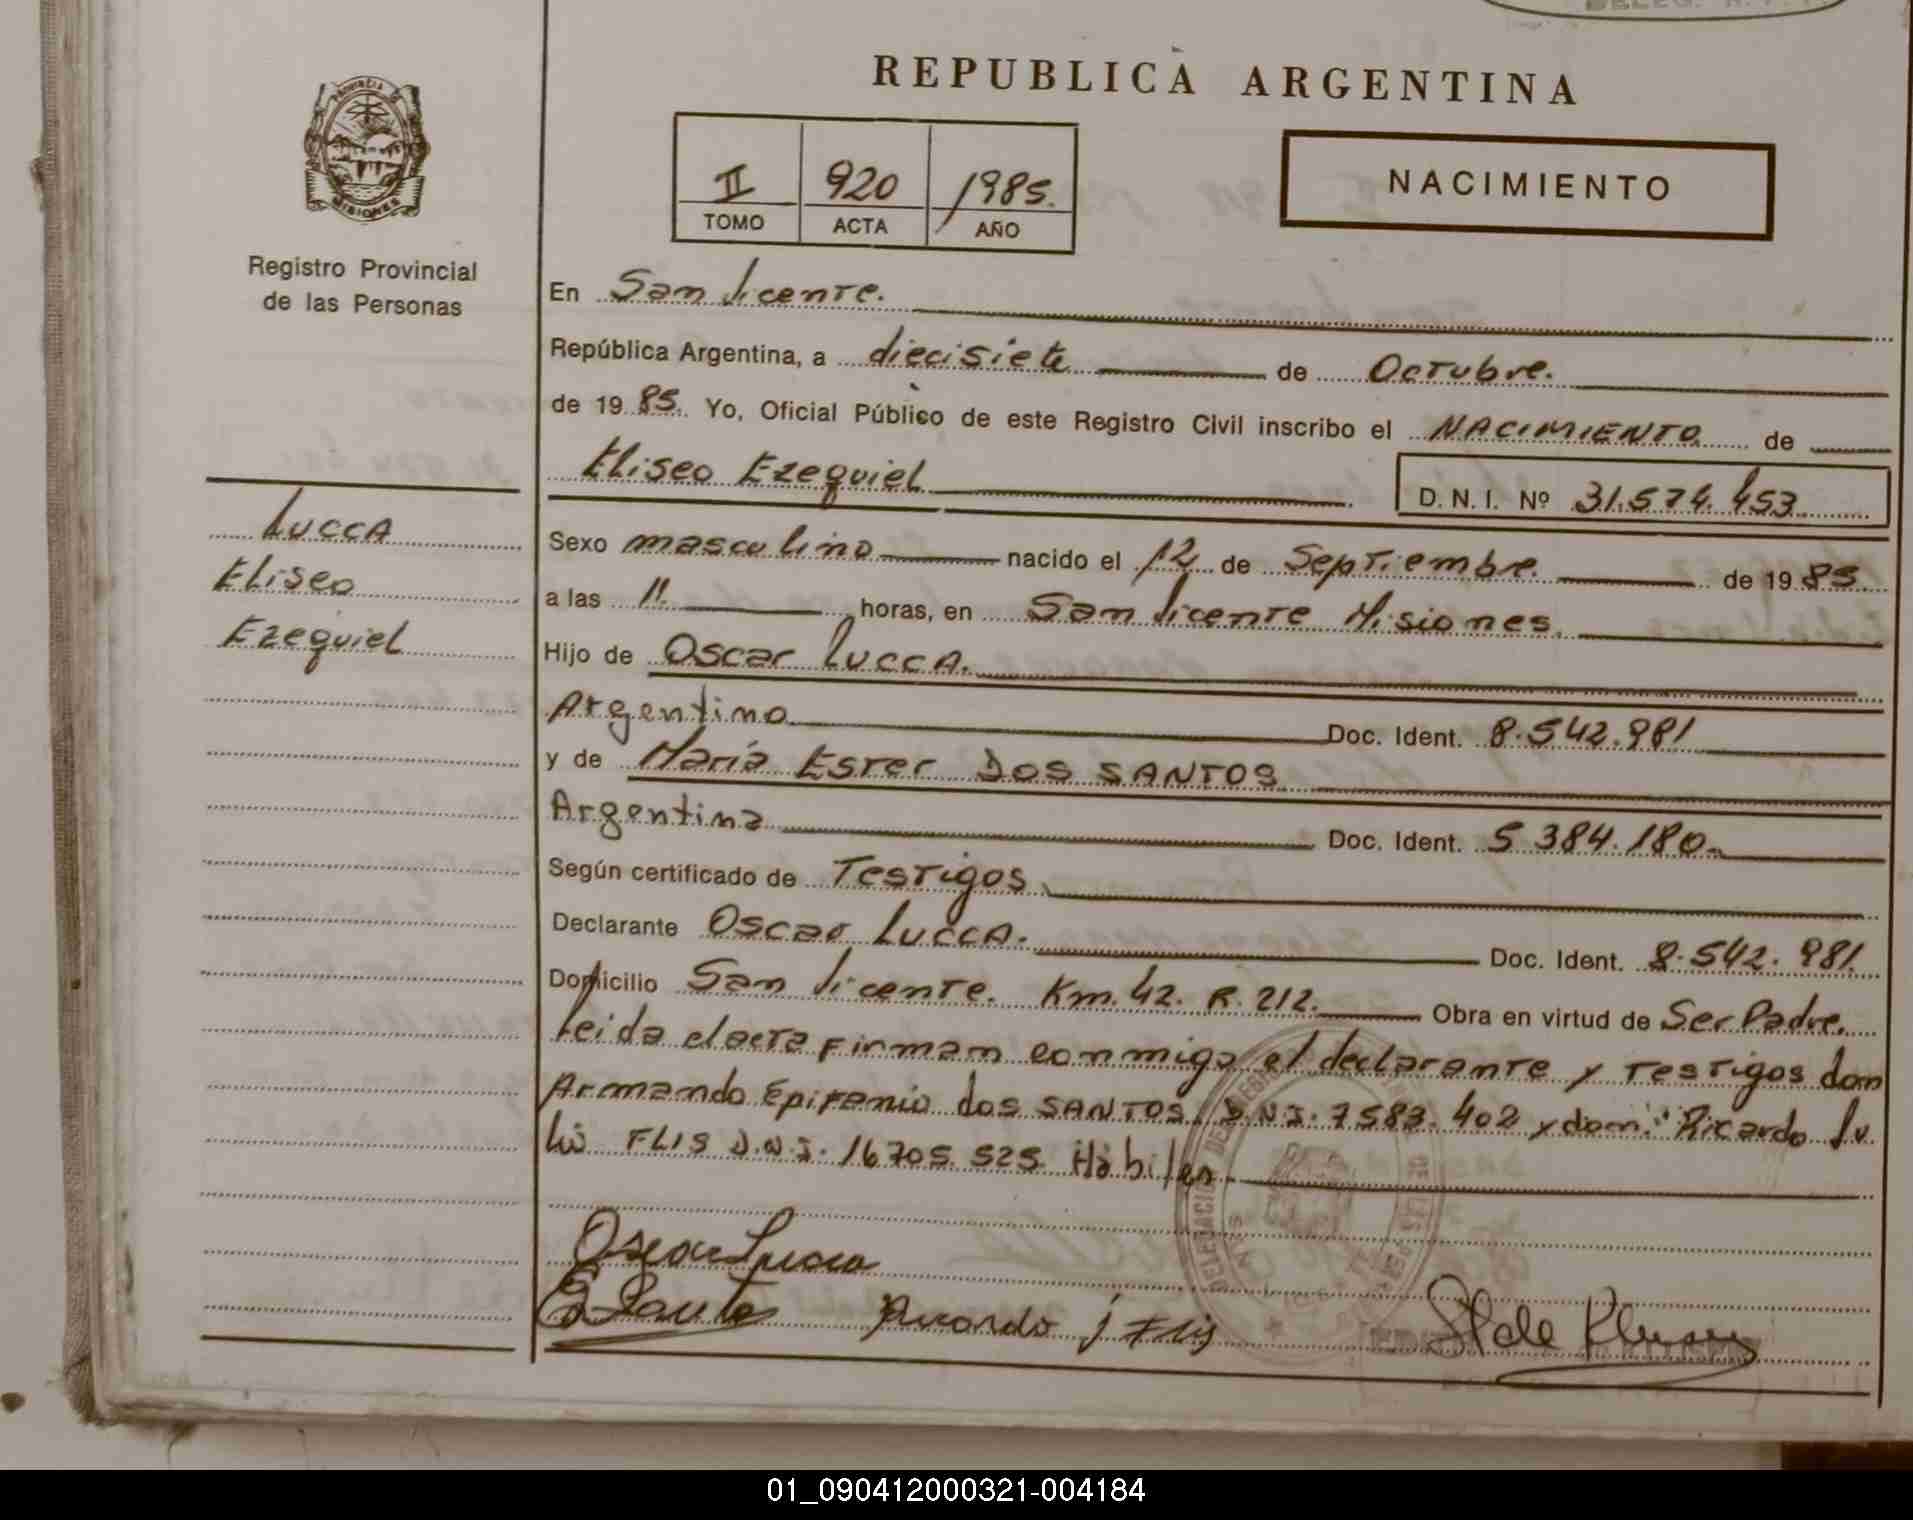 REPUBLICA ARGENTINA
PROVINCIA DE
MISIONES
Registro Provincial
de las Personas
II 920 1985.
TOMO ACTA AÑO
NACIMIENTO
En San Vicente.
República Argentina, a diecisiete de Octubre.
de 1985. Yo, Oficial Público de este Registro Civil inscribo el NACIMIENTO de
Eliseo Ezequiel D.N.I. Nº 31.574.453
LUCCA
Eliseo
Ezequiel
Sexo masculino nacido el 12 de Septiembre. de 1985.
a las 11. horas, en San Vicente Misiones.
Hijo de Oscar LUCCA.
Argentino Doc. Ident. 8.542.981
y de María Ester DOS SANTOS
Argentina Doc. Ident. 5 384.180.
Según certificado de Testigos
Declarante Oscar LUCCA. Doc. Ident. 8.542.981.
Domicilio San Vicente. Km. 42. R. 212. Obra en virtud de Ser Padre.
Leida el acta Firman conmigo el declarante y Testigos don
Armando Epifanio dos SANTOS D.N.I. 7583.402 y don: Ricardo Ju
lio FLIS D.N.I. 16705 525 Hábiles
Oscar Lucca
Ricardo J Flis
01_090412000321-004184